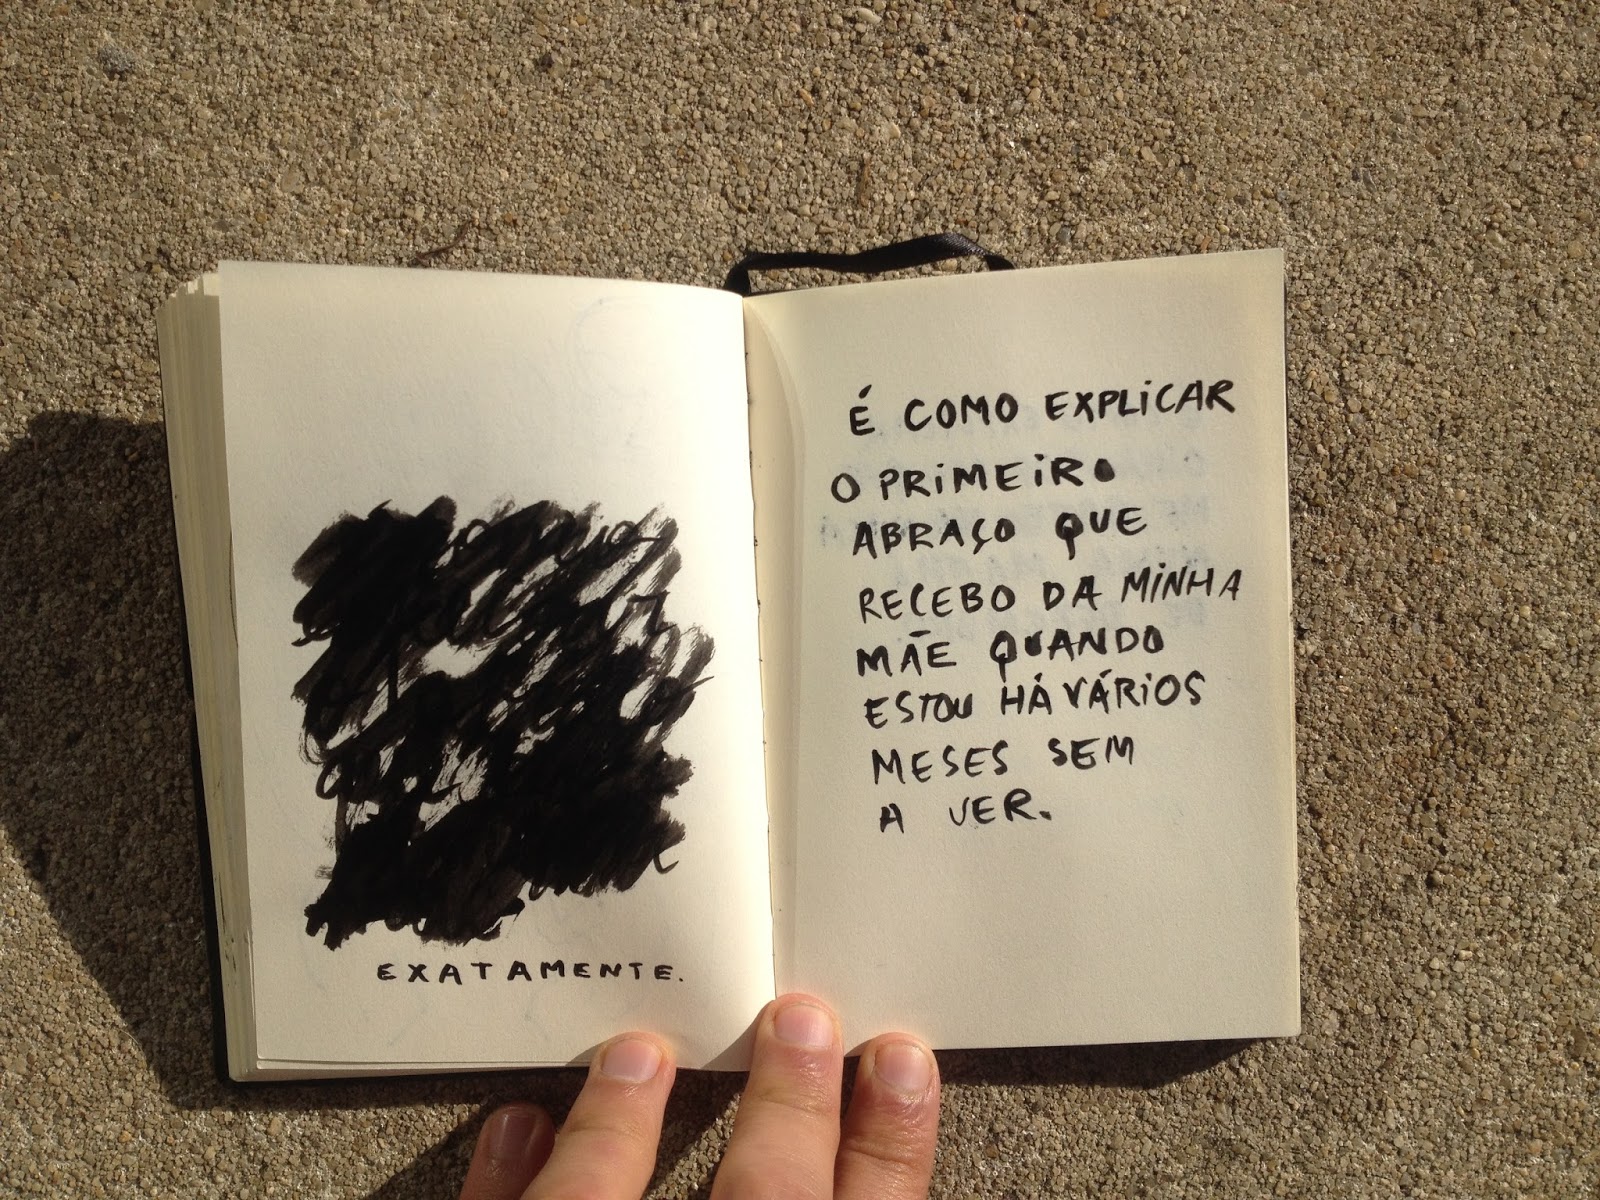 EXATAMENTE.
É COMO EXPLICAR
O PRIMEIRO
ABRAÇO QUE
RECEBO DA MINHA
MÃE QUANDO
ESTOU HÁ VÁRIOS
MESES SEM
A VER.